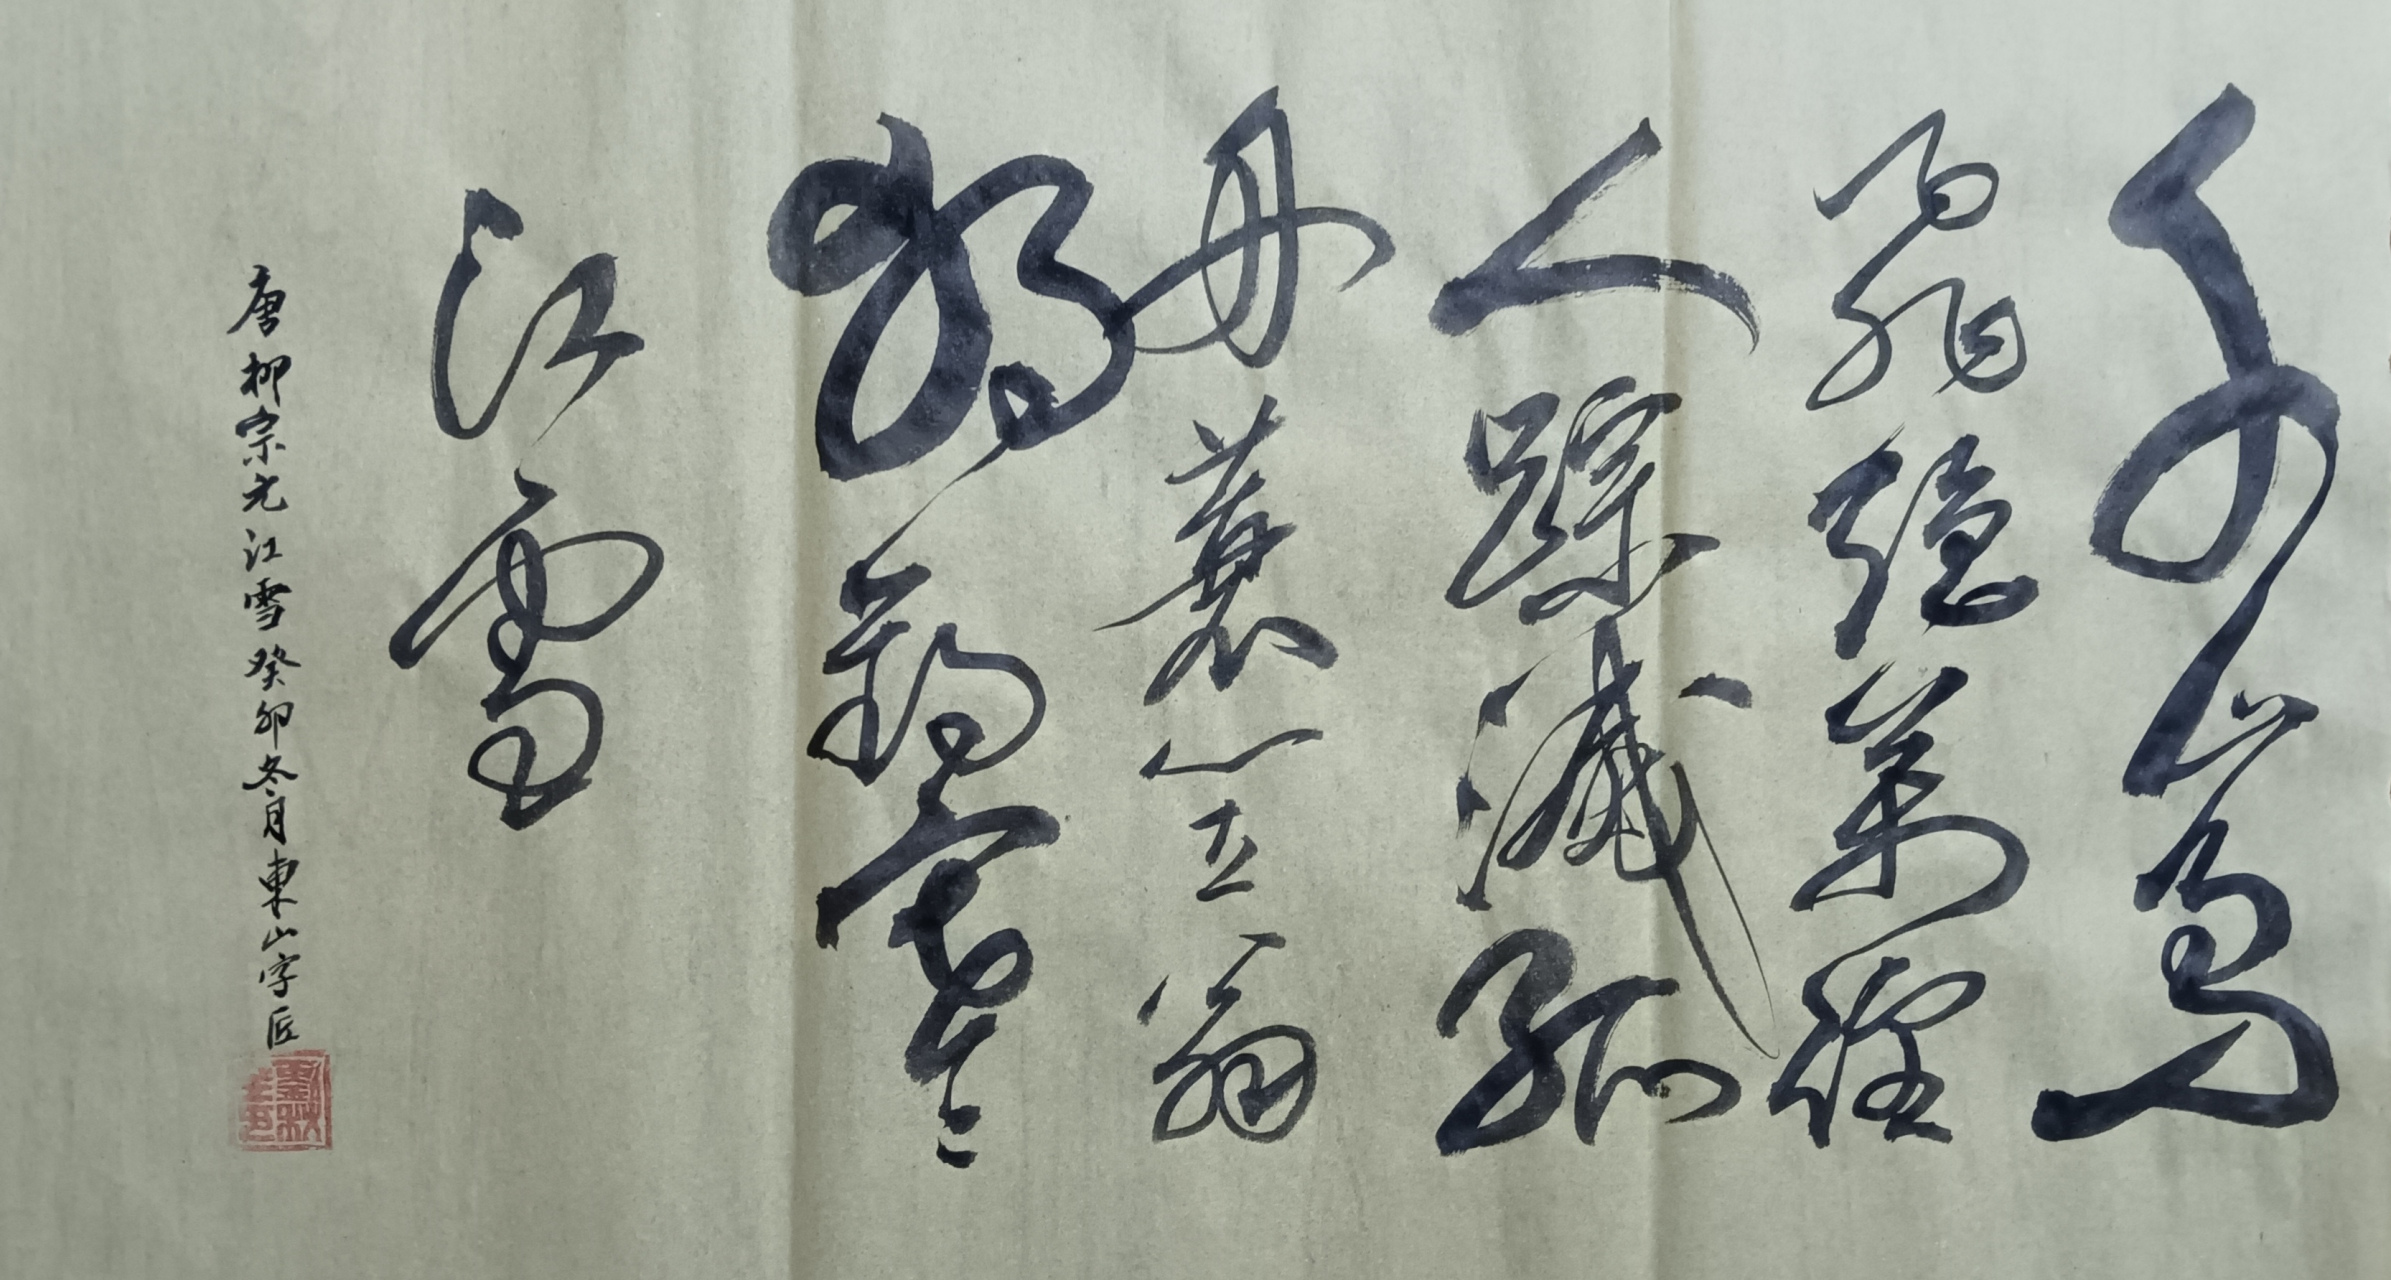 千山鳥
飛絕萬徑
人踪滅孤
舟蓑笠翁
獨釣寒
江雪
唐柳宗元江雪癸卯冬月東山字匠